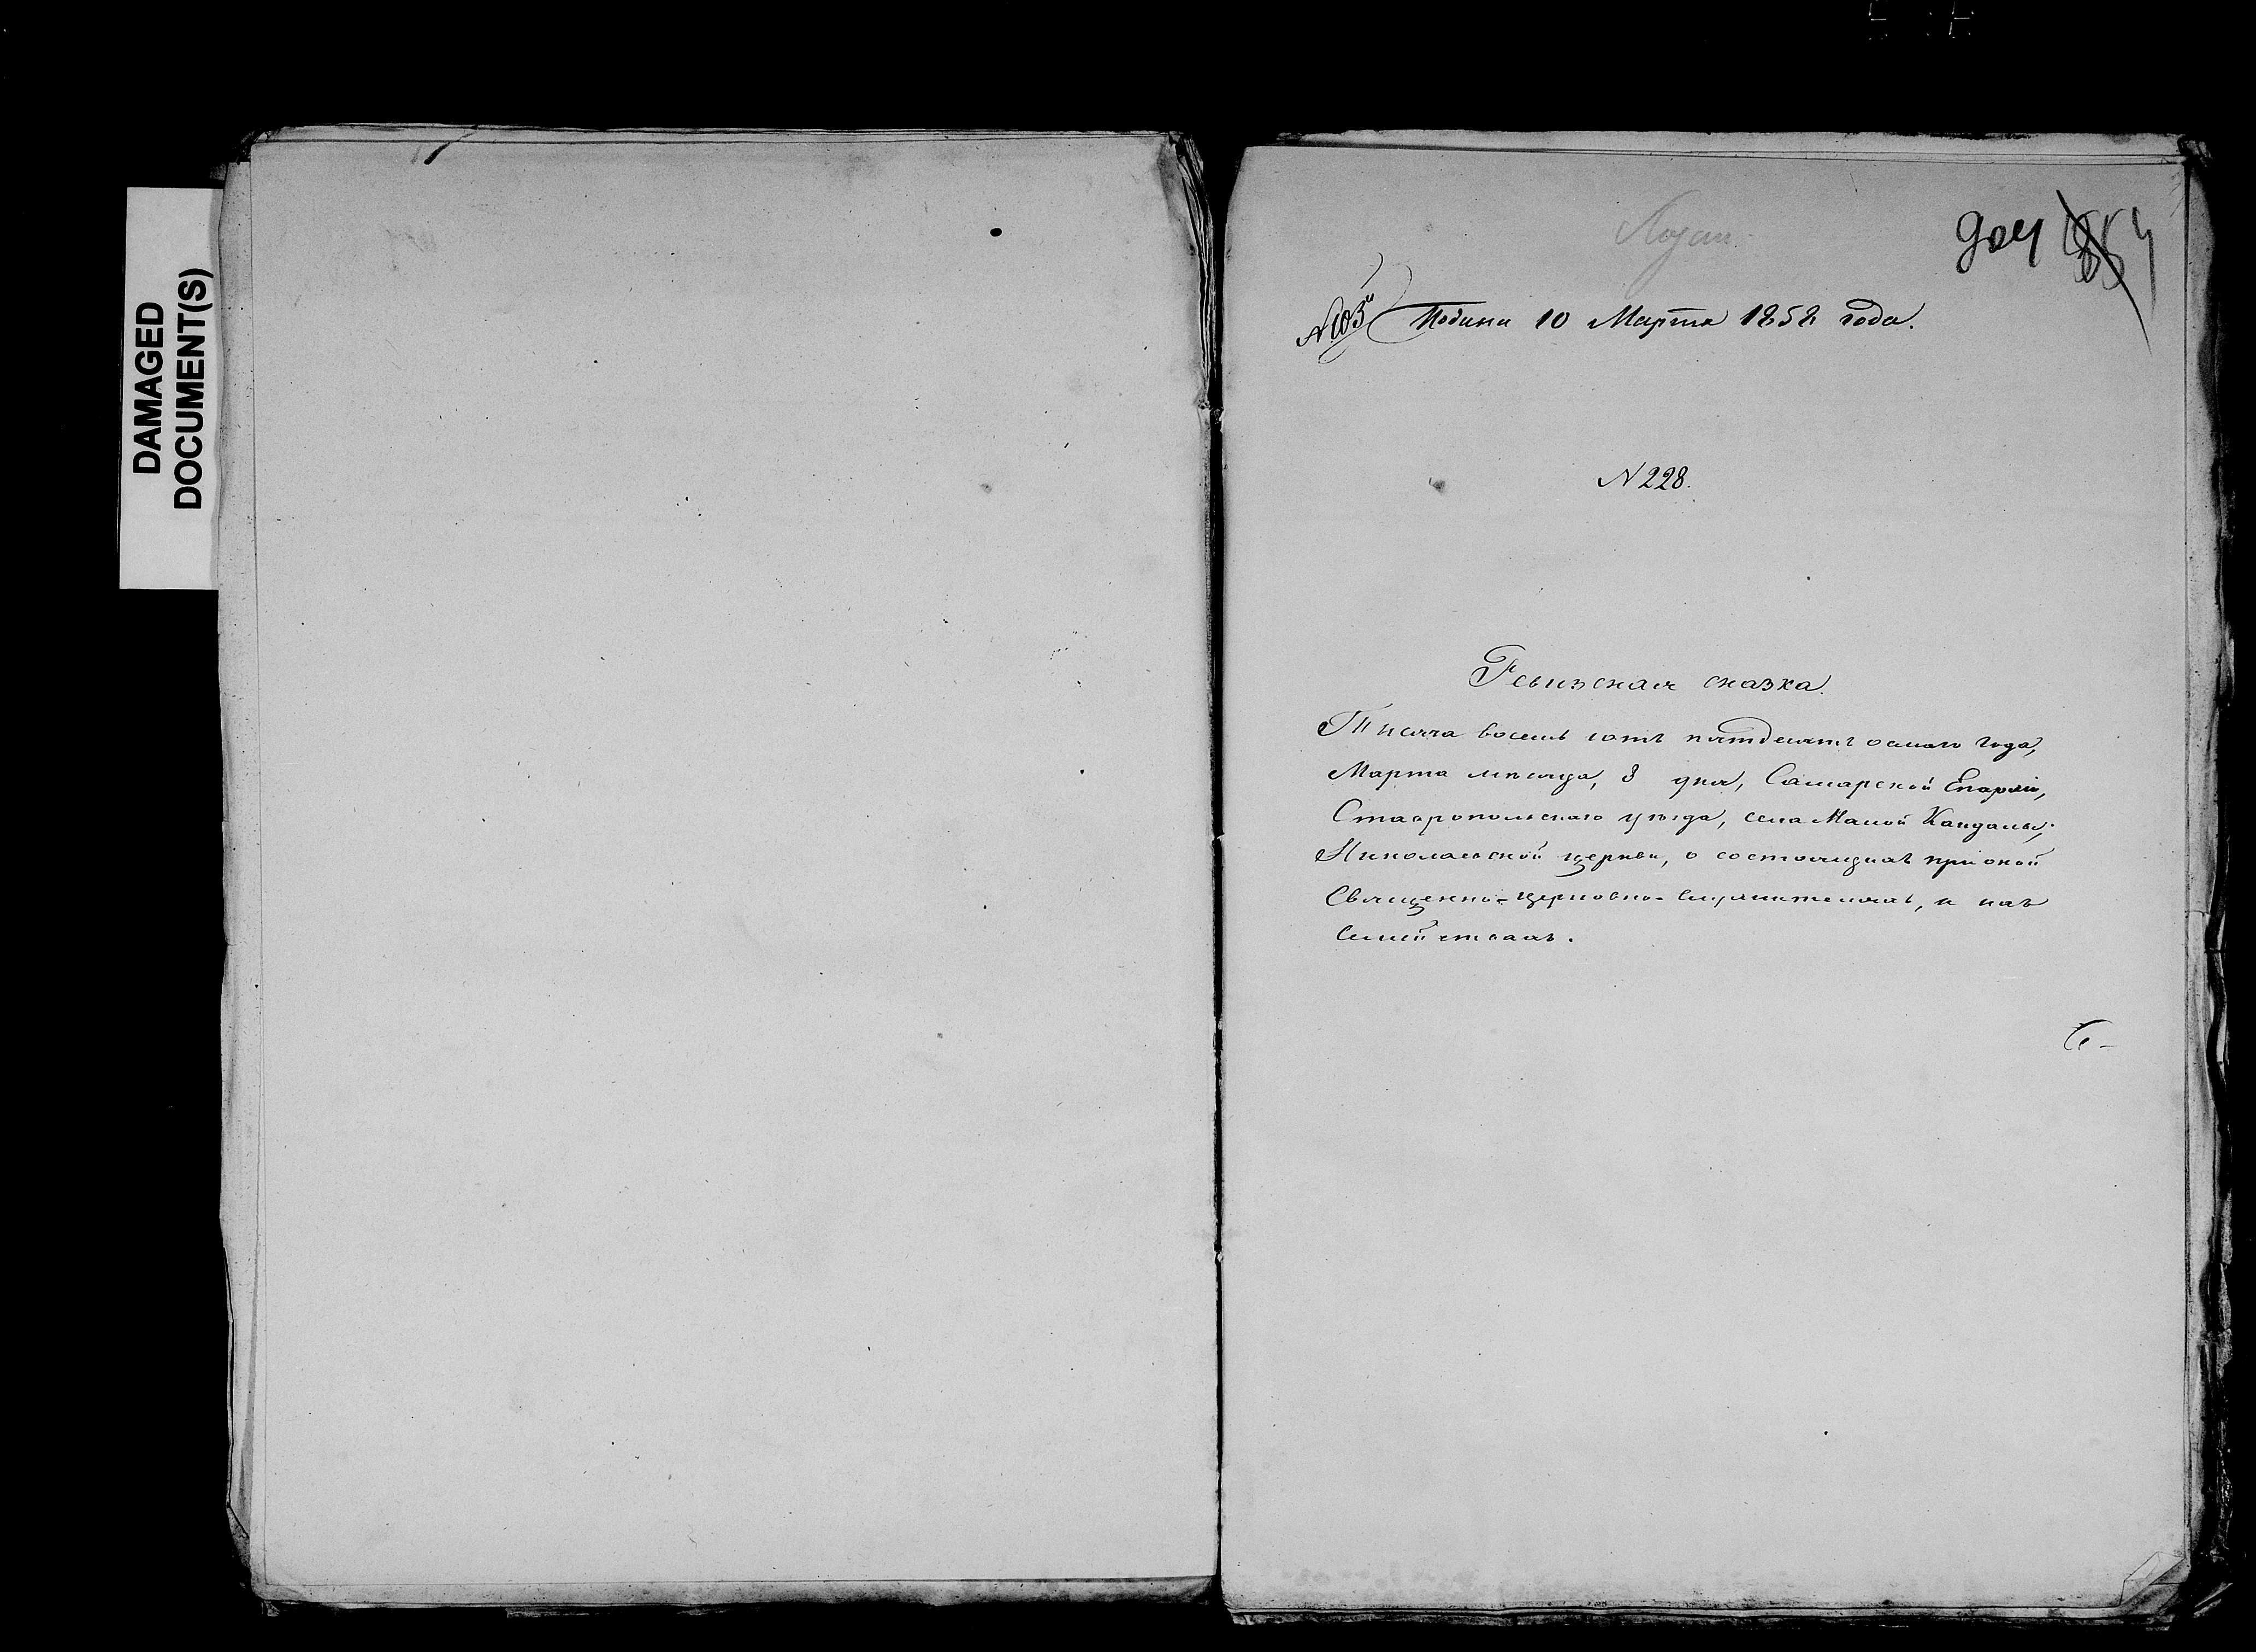 DAMAGED
DOCUMENT(S)
904
№ 103й Подана 10 Марта 1858 года.
N 228.
Ревизская сказка.
Тысяча восемь сотъ пятдесятъ осмаго года,
Марта мѣсяца, 8 дня, Самарской Епархіи,
Ставропольскаго уѣзда, села Малой Кандалы,
Николаевской церкви, о состоящихъ при оной
Священно-церковно-служителяхъ, и ихъ
семействахъ.